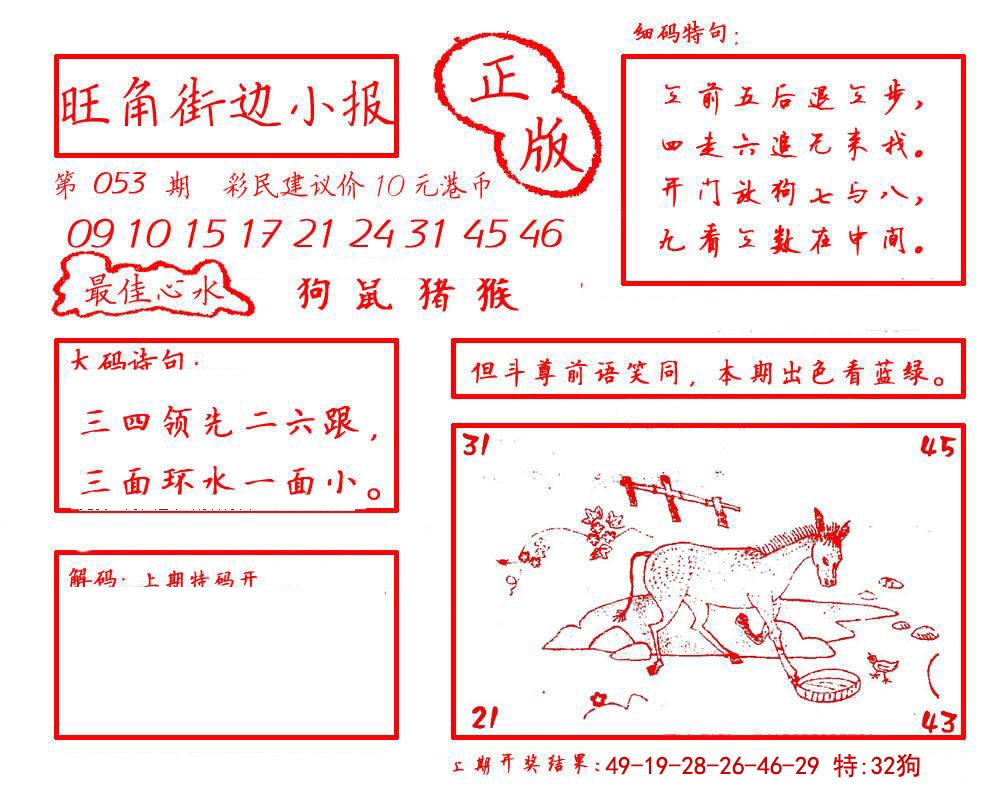 旺角街边小报
正版
第 053 期 彩民建议价10元港币
09 10 15 17 21 24 31 45 46
最佳心水
狗 鼠 猪 猴
细码特句：
三前五后退三步，
四走六追无来找。
开门放狗七与八，
九看三数在中间。
大码诗句.
三四领先二六跟，
三面环水一面小。
但斗尊前语笑同，本期出色看蓝绿。
解码. 上期特码开
31
45
21
43
上期开奖结果:49-19-28-26-46-29 特:32狗